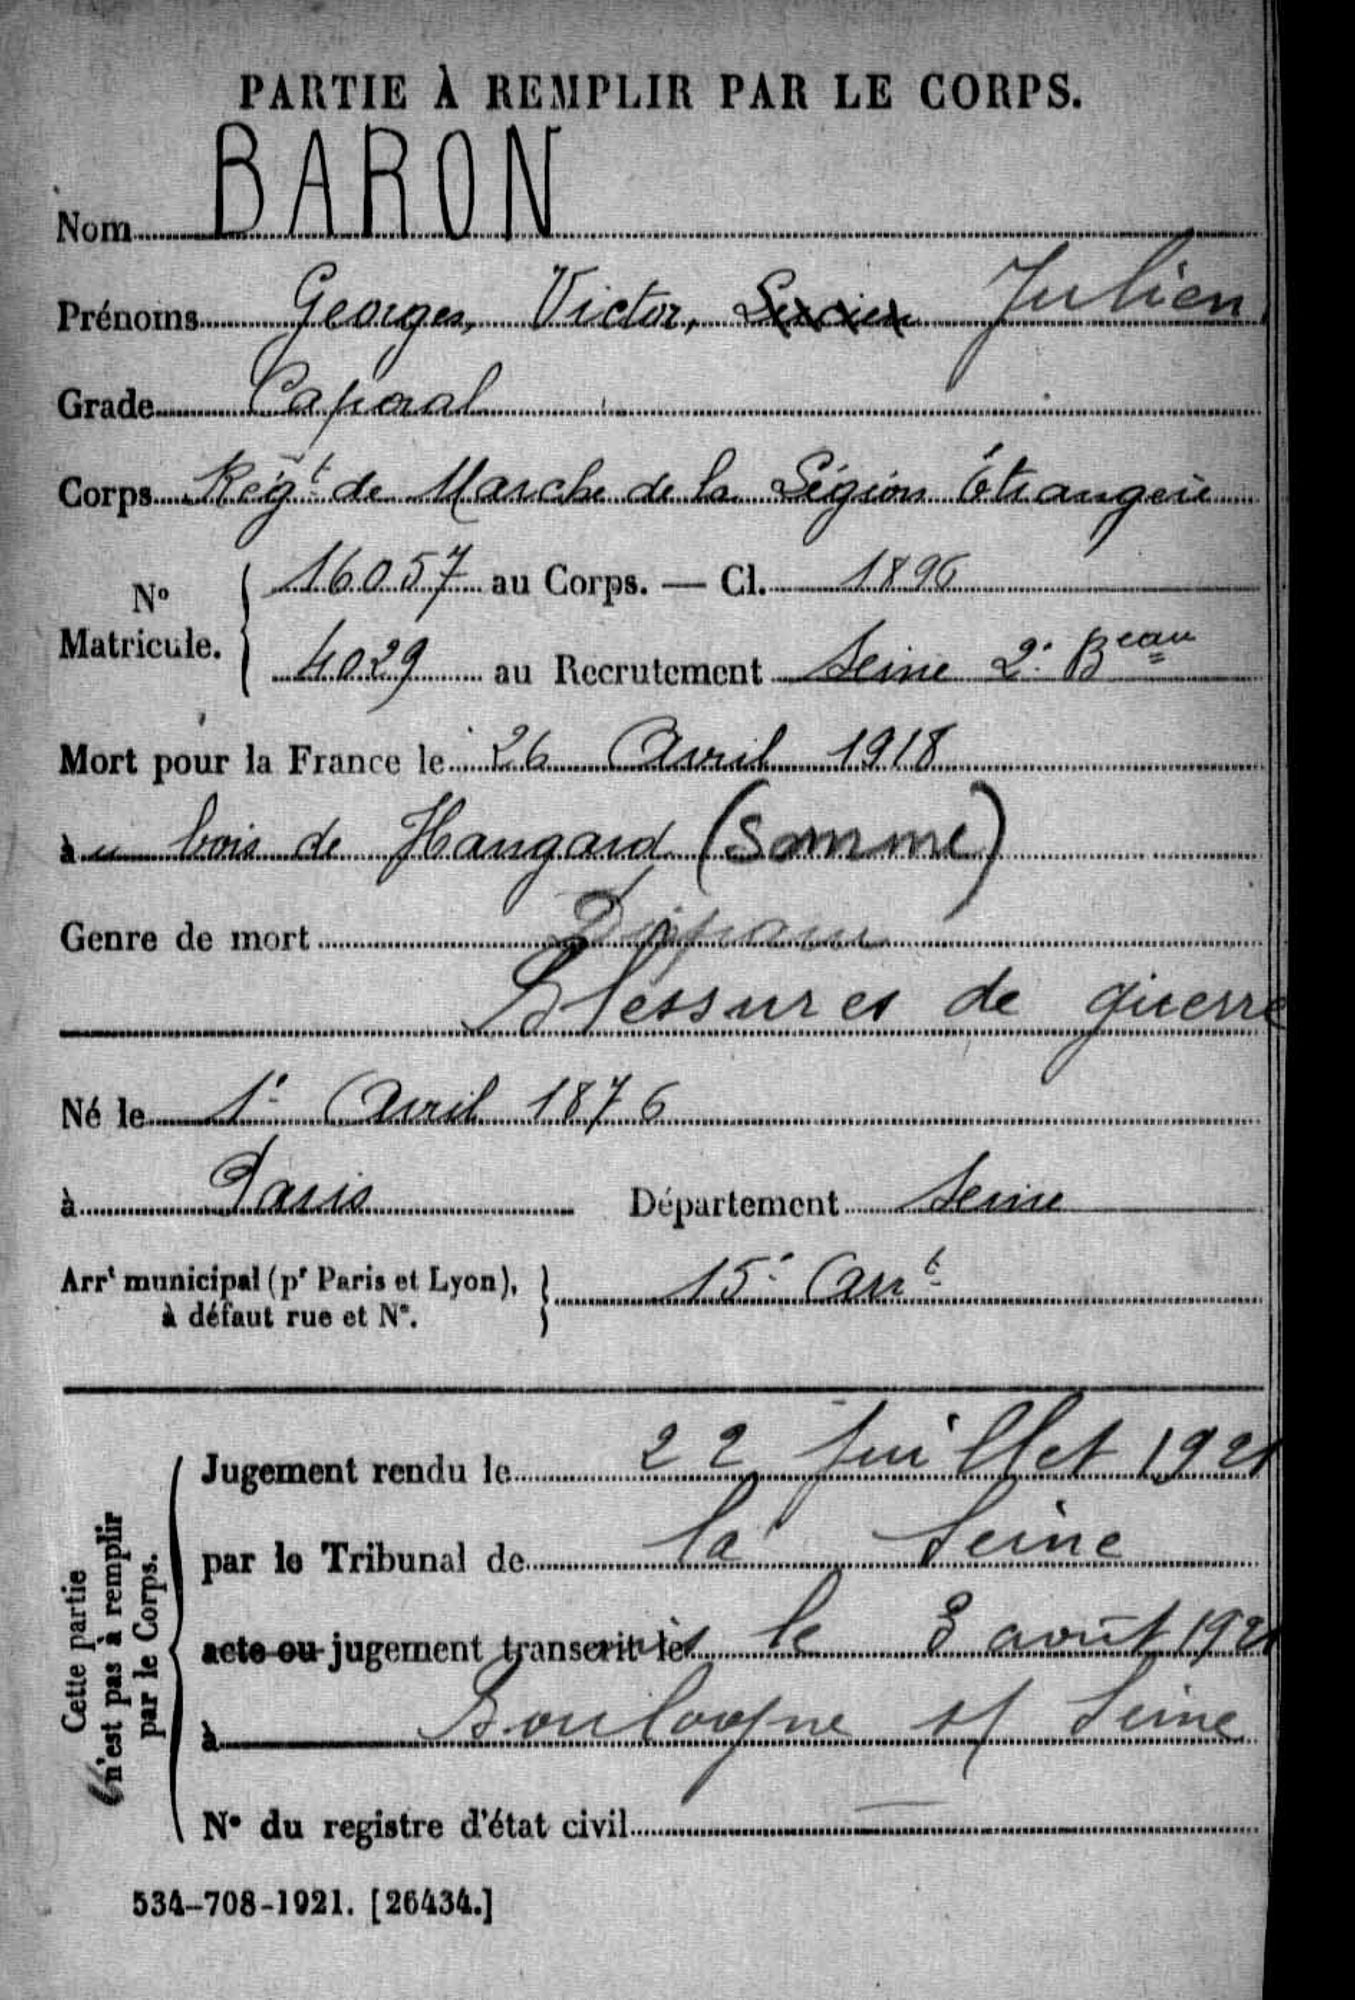 PARTIE À REMPLIR PAR LE CORPS.
Nom BARON
Prénoms Georges, Victor, Lucien Julien
Grade Caporal
Corps Régt de Marche de la Légion Étrangère
N° Matricule. 16057 au Corps. — Cl. 1896
4029 au Recrutement Seine 2e Beau
Mort pour la France le 26 Avril 1918
au bois de Hangard (Somme)
Genre de mort Disparu
Blessures de guerre
Né le 1er Avril 1876
à Paris Département Seine
Arrt municipal (pr Paris et Lyon), à défaut rue et N°. 15e Arrt
Cette partie n'est pas à remplir par le Corps.
Jugement rendu le 22 juillet 1921
par le Tribunal de la Seine
acte ou jugement transcrit le le 3 août 1921
à Boulogne s/ Seine
N° du registre d'état civil —
534-708-1921. [26434.]